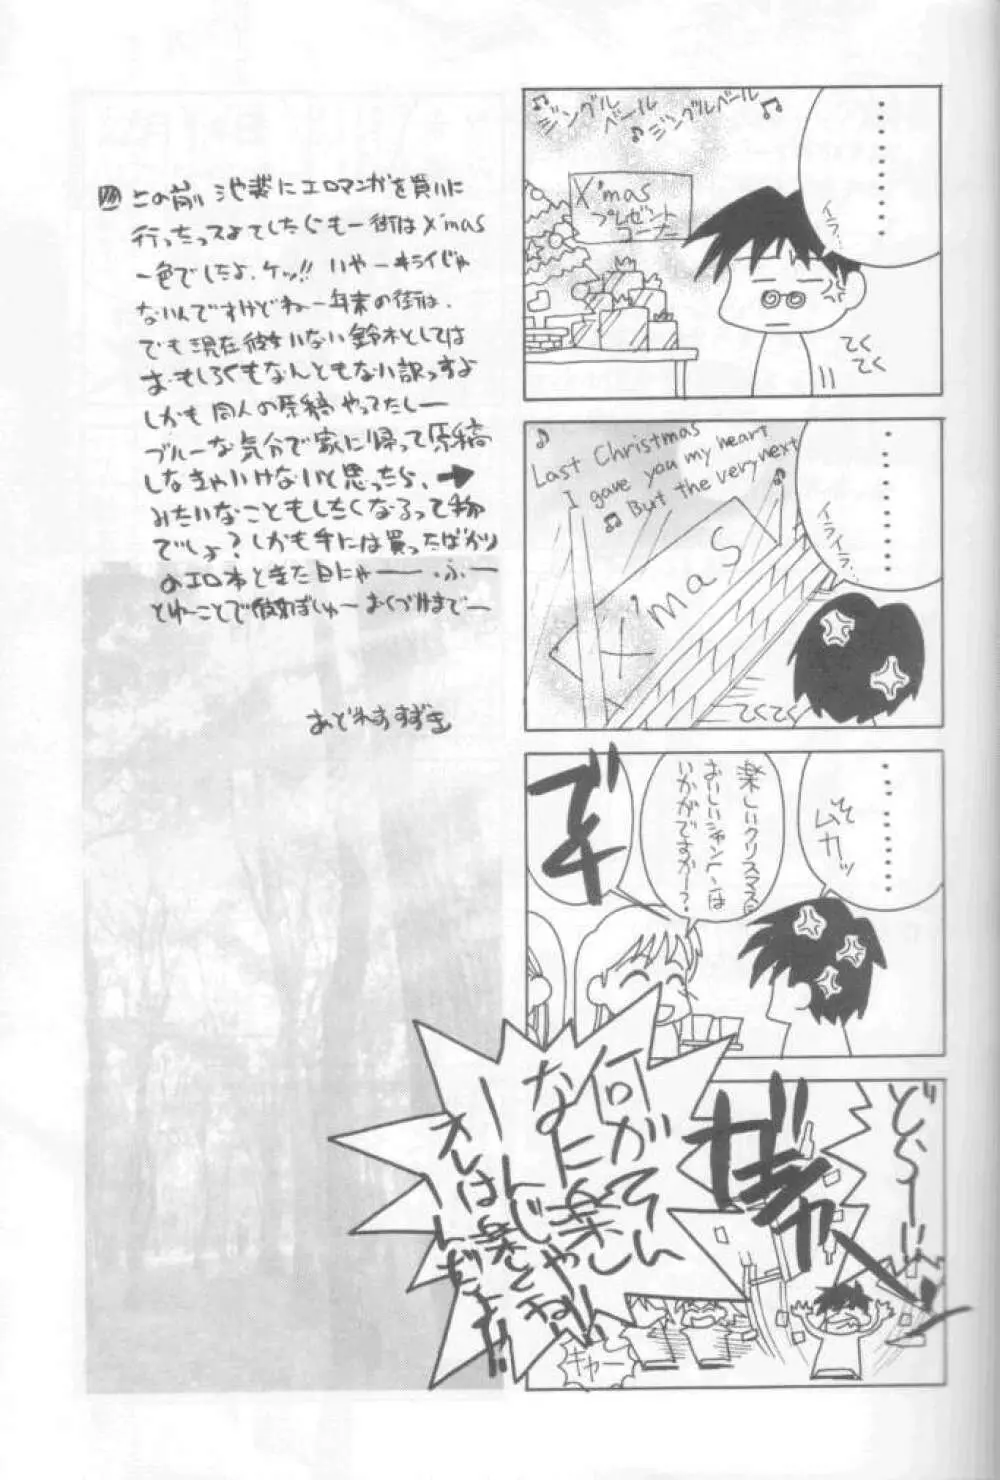 この前、池袋にエロマンガを買いに
行ったっスよてしたらもー街はX'mas
一色でしたよ、ケッ!! いやーキライじゃ
ないんですけどねー年末の街は、
でも現在彼女いない鈴木としては
おもしろくもなんともない訳っすよ
しかも同人の原稿やってたしー
ブルーな気分で家に帰って原稿
しなきゃいけないと思ったら、→
みたいなこともしたくなるって物
でしょ?しかも手には買ったばかり
のエロ本ときた日にゃー ふー
とゆーことで彼女ぼしゅー おくづけまでー
あどれすすずき
♪ジングル
ベール
♪ジングルベール♪
X'mas
プレゼント
コーナー
・・・・・・・・
イライラ…
てく
てく
♪
Last Christmas
I gave you my heart
♫ But the very next
♫
X'mas
・・・・・・・・
イライラ…
てくてく
・・・・・・・・
ムカッ
楽しいクリスマスに
おいしいシャンペンは
いかがですかー?
でな
どら〜!!
何がてん
なに楽しい
んじゃ
オレは
ギャー